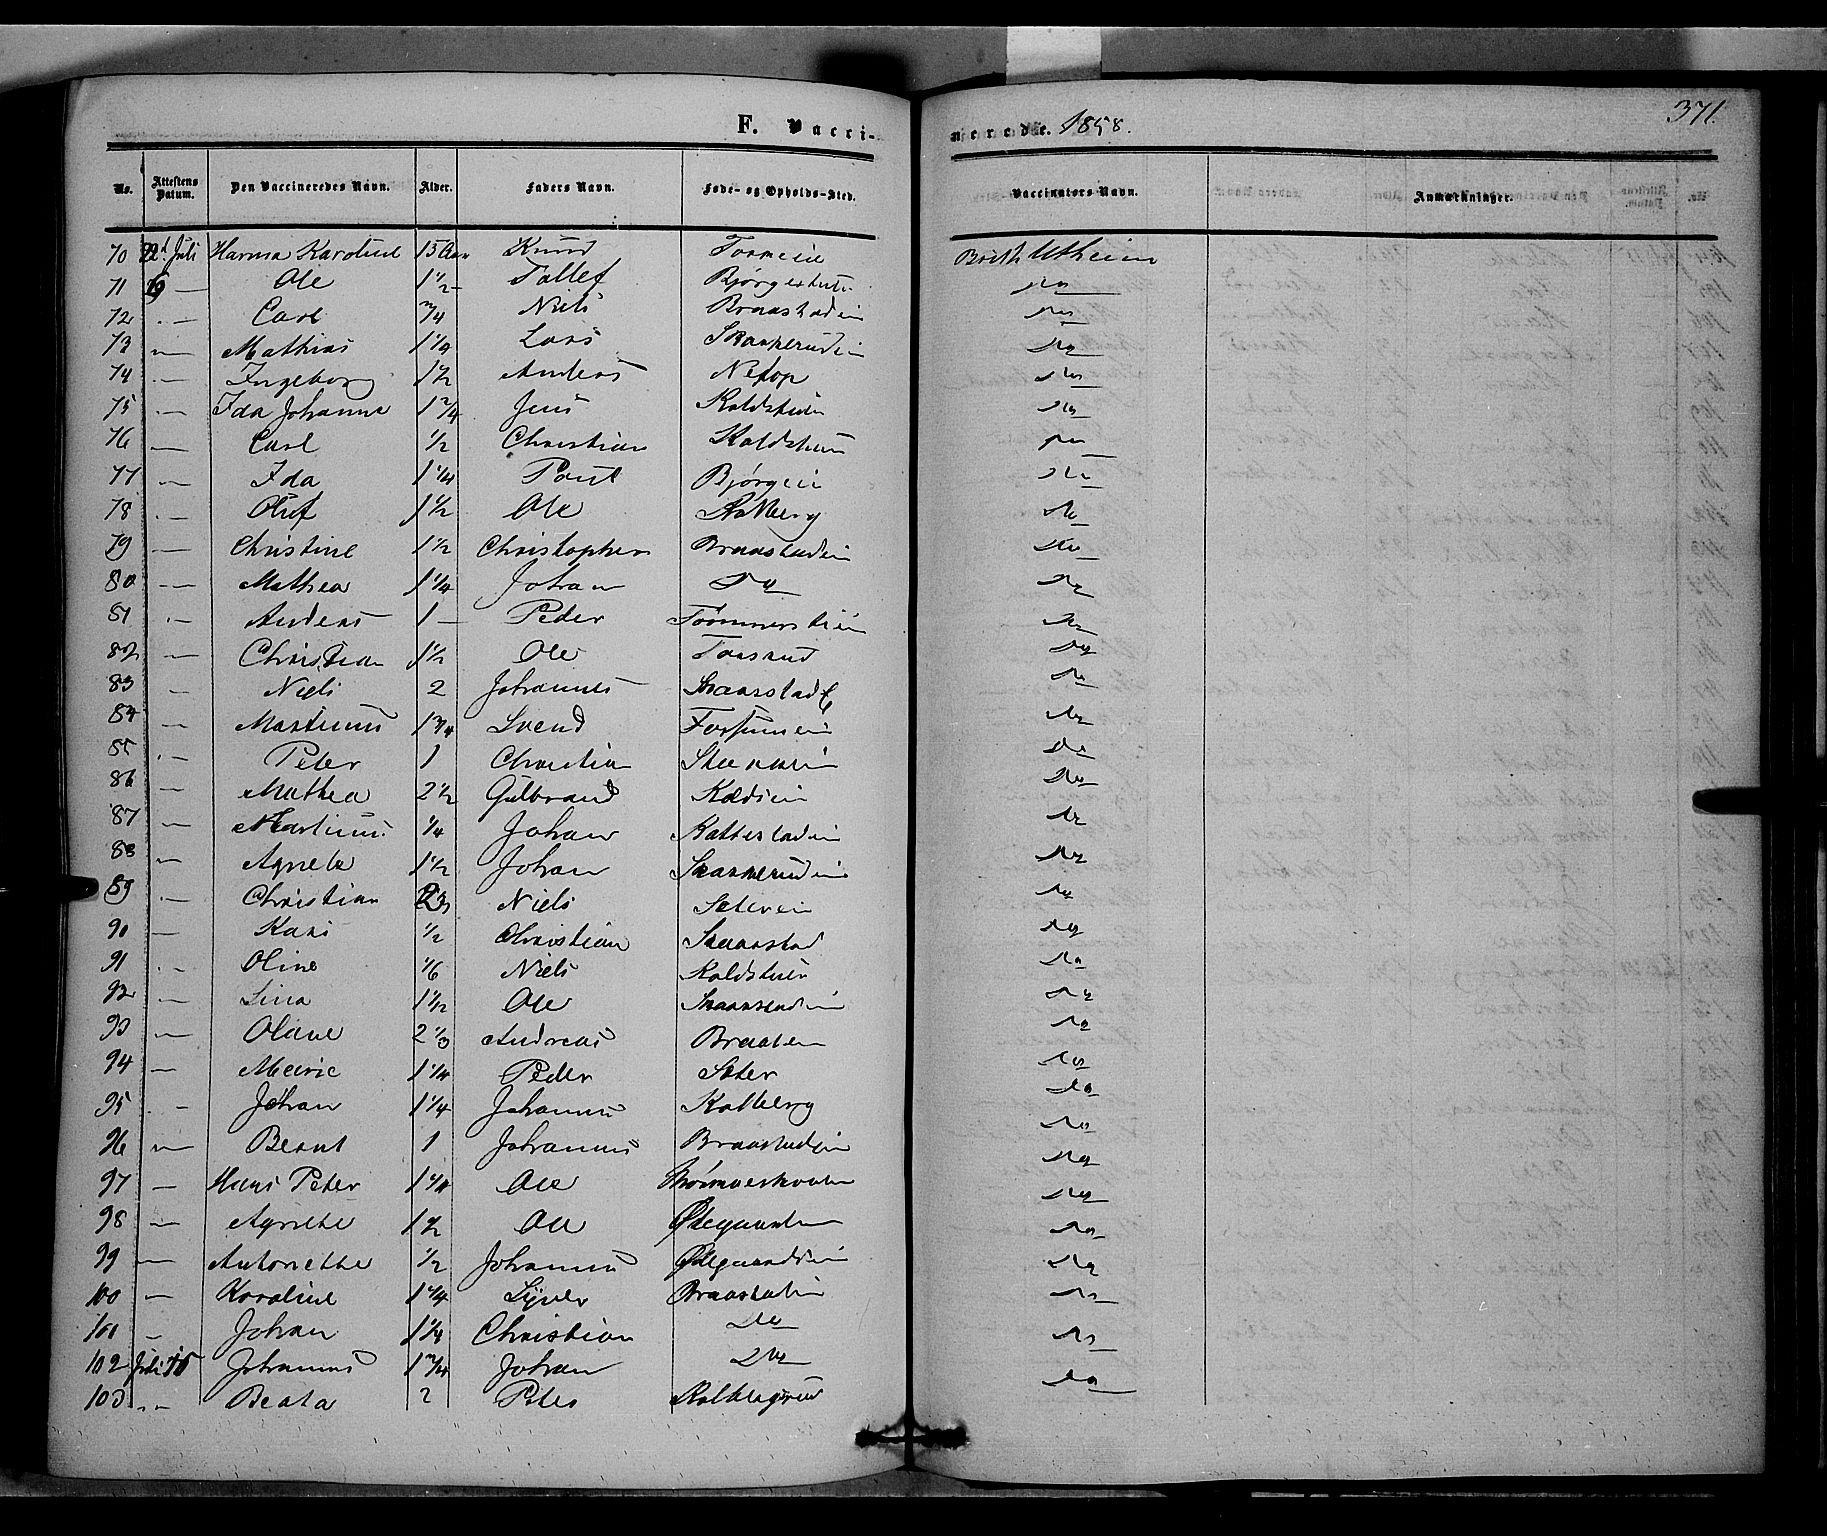 F. Vacci- nerede. 1858. 371
No. Attestens Datum. Den Vaccineredes Navn. Alder. Faders Navn. Føde- og Opholds-Sted. Vaccinators Navn. Anmærkninger.
70 Juli Karoline 15 Aar Knud
71 — Ole 1 1/2 Tollef Do
72 — Carl 3/4 Niels Braastadein Do
73 — Mathias 1 1/4 Lars Skankerudein Do
74 — Ingeborg 1 1/2 Anders Do
75 — Ida Johanne 1 3/4 Jens Koldstuen Do
76 — Carl 1/2 Christian Koldstuen Do
77 — Ida 1 1/4 Poul Bjørgein Do
78 — Oluf 1 1/2 Ole Kolberg Do
79 — Christine 1 1/2 Christopher Braastadein Do
80 — Mathea 1 1/4 Johan Do Do
81 — Anders 1 — Peder Do
82 — Christian 1 1/2 Ole Do
83 — Niels 2 Johannes Do
84 — Martinus 1 3/4 Svend Do
85 — Peter 1 Christian Do
86 — Mathea 2 1/2 Gulbrand Do
87 — Martinus 1/4 Johan Kattestadein Do
88 — Agnete 1 1/2 Johan Skankerudein Do
89 — Christian Niels Do
90 — Kari 1/2 Christian Skaarstad Do
91 — Oline 1/6 Niels Koldstuen Do
92 — Lina 1 1/2 Ole Do
93 — Olave 2 1/3 Andreas Braaten Do
94 — 1 1/4 Peder Seter Do
95 — Johan 1 1/4 Johannes Kolberg Do
96 — Bernt 1 Johannes Braastadein Do
97 — Hans Peter 1 1/4 Ole Do
98 — Agnethe 1 1/2 Ole Ødegaarden Do
99 — Antonette 1/2 Johannes Ødegaardein Do
100 — Karoline 1 1/4 Syver Braastadein Do
101 — Johan 1 1/4 Christian Do Do
102 Juli 15 Johannes 1 3/4 Johan Do Do
103 — Beata 2 Peter